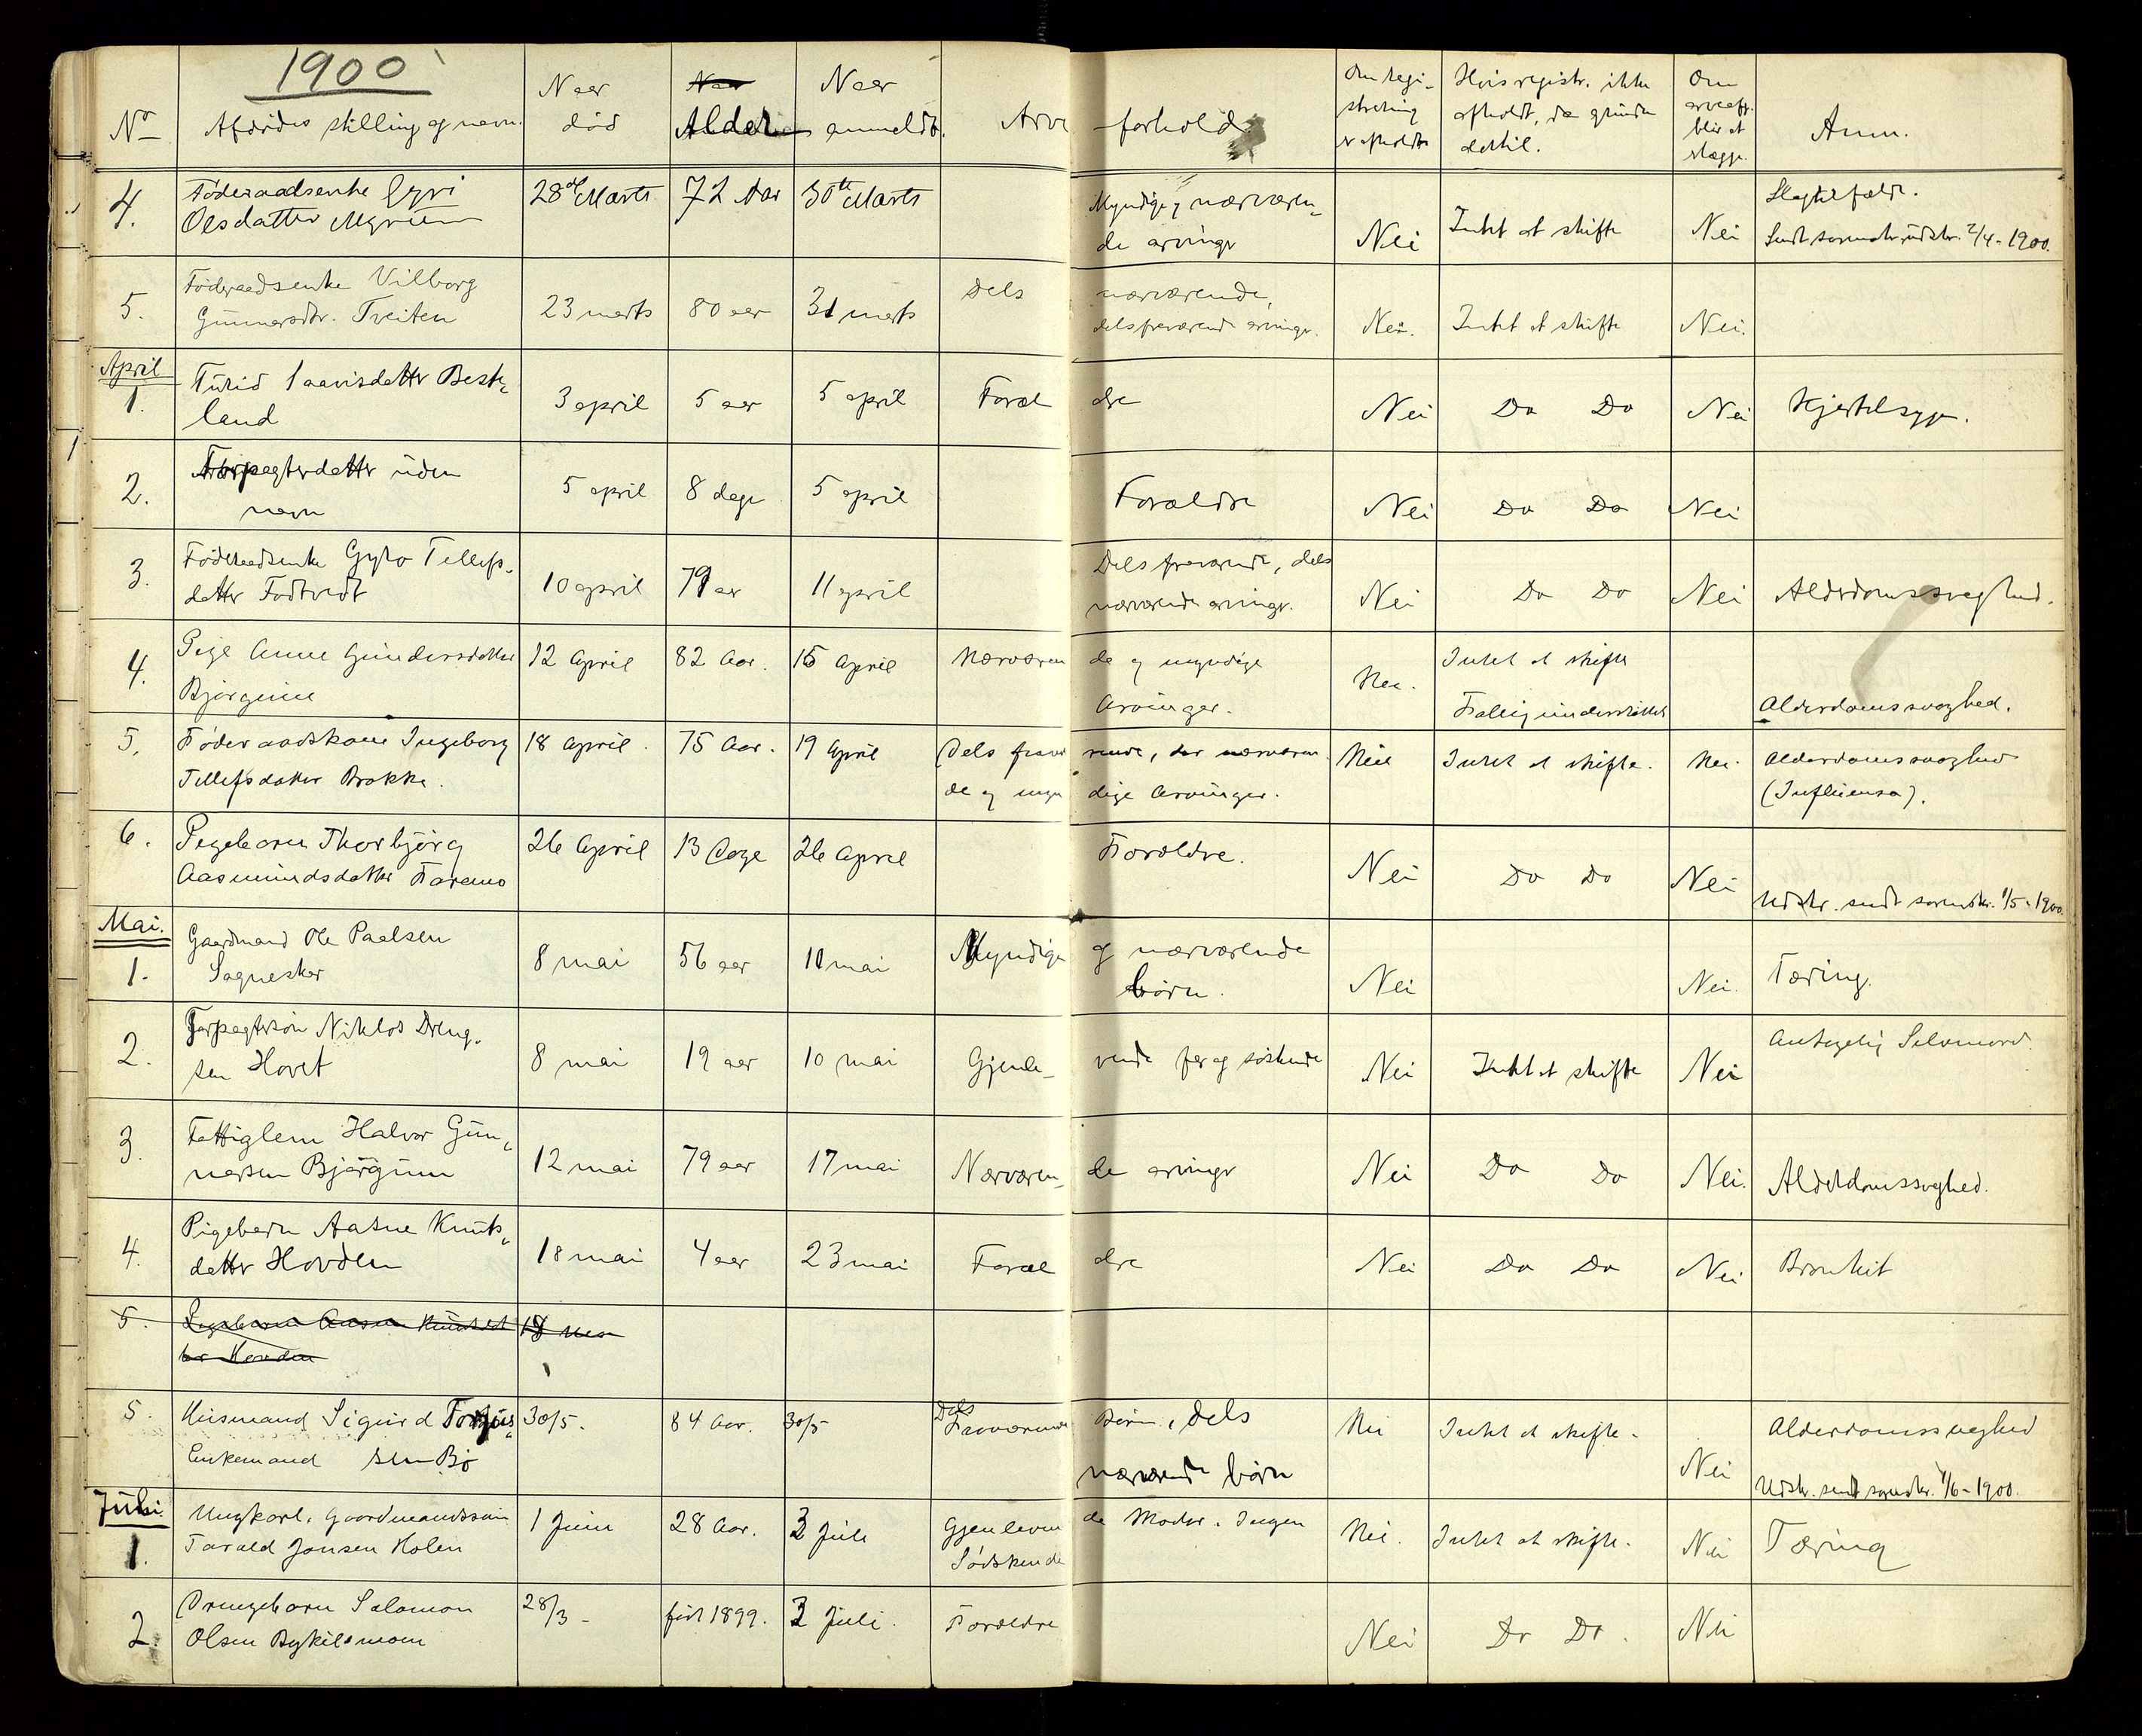 1900
No Afdødes stilling og navn. Naar død Alder Naar anmeldt. Arveforhold Om registrering er afholdt Hvis registr. ikke afholdt, da grunden dertil. Om arveafg. blir at vlægge. Anm.
4. Føderaadsenke Gyri 28de Marts 72 Aar 30te Marts Myndige, nærværen- Slagtilfælde.
Olsdatter Myrum de arvinger Nei Intet at skifte Nei Sendt sorenskr. udskr. 2/4-1900.
5. Føderaadsenke Vilborg 23 marts 80 aar 31 marts Dels nærværende,
Gunnarsdtr. Treiten delsfraværende arvinger. Nei. Intet at skifte Nei.
April
1. Turid Taavisdatter Besteland 3 april 5 aar 5 april Forældre Nei Do Do Nei Kjertelsyge.
2. Forpagterdatter uden navn 5 april 8 dage 5 april Forældre Nei Do Do Nei
3. Føderaadsenke Gyro Tellefs- 10 april 79 aar 11 april Dels fraværende, dels
datter Fodtvedt nærværende arvinger. Nei Do Do Nei Alderdomssvaghed.
4. Pige Anne Gundersdatter 12 April 82 Aar. 15 April Nærværende og myndige Nei. Intet at skifte
Bjørgum Arvinger. Fattigunderstøttet Alderdomssvaghed.
5. Føderaadskone Ingeborg 18 April. 75 Aar. 19 April Dels fraværende, der nærværen Nei Intet at skifte. Nei. Alderdomssvaghed
Tellefsdatter Brokke. de og myndige Arvinger. (Influensa).
6. Pigebarn Thorbjørg 26 April 13 Dage 26 April Forældre.
Aasmundsdatter Faremo Nei Do Do Nei Udskr. sendt sorenskr. 1/5-1900.
Mai.
1. Gaardmand Ole Paalsen 8 mai 56 aar 10 mai Myndige og nærværende
Sagnesker børn. Nei Nei. Tæring.
2. Forpagtersøn Niklos Dreng- 8 mai 19 aar 10 mai Gjenle- vende far og søskende Nei Intet at skifte Nei Antagelig Selvmord.
sen Hovet
3. Fattiglem Halvor Gun- 12 mai 79 aar 17 mai Nærværen- de arvinger Nei Do Do Nei. Alderdomssvaghed.
narsen Bjørgum
4. Pigebarn Aasne Knuts- 18 mai 4 aar 23 mai Forældre Nei Do Do Nei Bronkit
datter Hovden
5. Pigebarn Aasne Knutsdat 18 Mai
ter Hovden
5. Husmand Sigurd Torjus- 30/5. 84 Aar. 30/5 Dels Fraværende Børn, dels Nei Intet at skifte. Alderdomssvaghed
Enkemand sen Bø nærværende børn Nei Udskr. sendt sorenskr. 1/6-1900.
Juli
1. Ungkarl, Gaardmandssøn 1 Juni 28 Aar. 2 Juli Gjenlevende Moder. Ingen Nei. Intet at skifte. Nei Tæring
Tarald Jonsen Holen Sødskende
2. Drengebarn Salomon 28/3 - født 1899. 2 Juli. Forældre Nei Do Do. Nei
Olsen Bykilsmoen